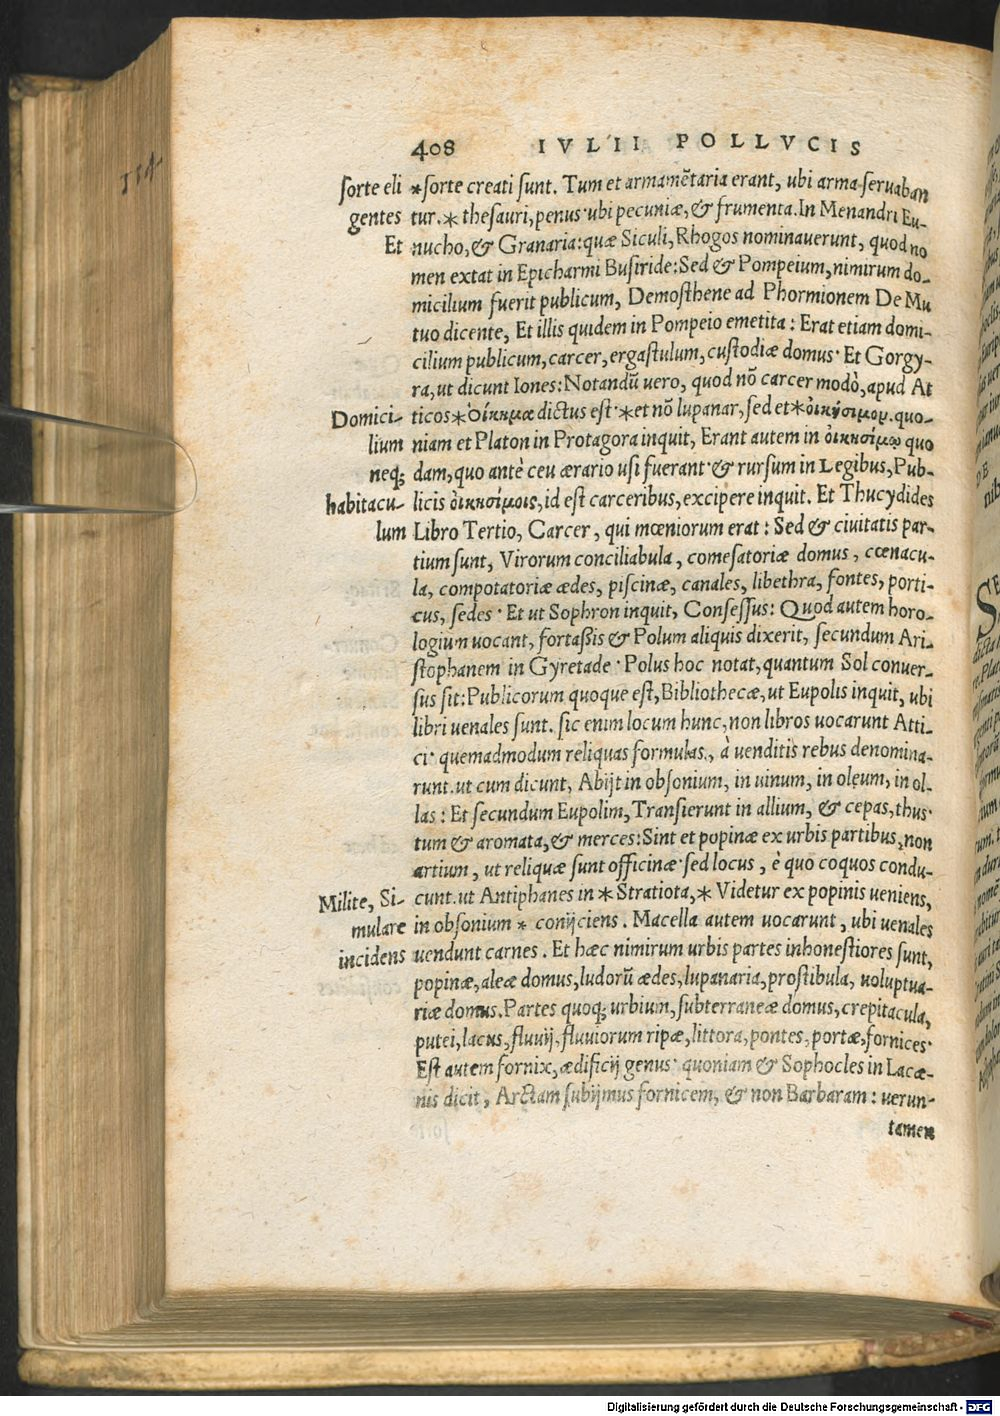 114
408 IVLII POLLVCIS
sorte eli *sorte creati sunt. Tum et armamẽtaria erant, ubi arma seruaban
gentes tur.* thesauri, penus· ubi pecuniæ, & frumenta. In Menandri Eu-
Et nucho, & Granaria: quæ Siculi, Rhogos nominauerunt, quod no
men extat in Epicharmi Busiride: Sed & Pompeium, nimirum do-
micilium fuerit publicum, Demosthene ad Phormionem De Mu
tuo dicente, Et illis quidem in Pompeio emetita: Erat etiam domi-
cilium publicum, carcer, ergastulum, custodiæ domus· Et Gorgy-
ra, ut dicunt Iones: Notandũ uero, quod nõ carcer modò, apud At
Domici- ticos *ὀίκημα dictus est· *et nõ lupanar, sed et* ὀικήσιμον. quo-
lium niam et Platon in Protagora inquit, Erant autem in ὀικησίμῳ quo
neq; dam, quo antè ceu ærario usi fuerant· & rursum in Legibus, Pub-
habitacu- licis ὀικησίμοις, id est carceribus, excipere inquit. Et Thucydides
lum Libro Tertio, Carcer, qui mœniorum erat: Sed & ciuitatis par-
tium sunt, Virorum conciliabula, comesatoriæ domus, cœnacu-
la, compotatoriæ ædes, piscinæ, canales, libethra, fontes, porti-
cus, sedes· Et ut Sophron inquit, Consessus: Quod autem horo-
logium uocant, fortaßis & Polum aliquis dixerit, secundum Ari-
stophanem in Gyretade· Polus hoc notat, quantum Sol conuer-
sus sit: Publicorum quoque est, Bibliothecæ, ut Eupolis inquit, ubi
libri uenales sunt. sic enim locum hunc, non libros uocarunt Atti-
ci· quemadmodum reliquas formulas, à uenditis rebus denomina-
runt. ut cum dicunt, Abijt in obsonium, in uinum, in oleum, in ol-
las: Et secundum Eupolim, Transierunt in allium, & cepas, thus·
tum & aromata, & merces: Sint et popinæ ex urbis partibus, non
artium, ut reliquæ sunt officinæ· sed locus, è quo coquos condu-
Milite, Si- cunt. ut Antiphanes in * Stratiota, * Videtur ex popinis ueniens,
mulare in obsonium * conijciens. Macella autem uocarunt, ubi uenales
incidens uendunt carnes. Et hæc nimirum urbis partes inhonestiores sunt,
popinæ, aleæ domus, ludorũ ædes, lupanaria, prostibula, uoluptua-
riæ domus. Partes quoq; urbium, subterraneæ domus, crepitacula,
putei, lacus, fluuij, fluuiorum ripæ, littora, pontes, portæ, fornices·
Est autem fornix, ædificij genus· quoniam & Sophocles in Lacæ-
nis dicit, Arctam subijmus fornicem, & non Barbaram: uerun-
tamen
Digitalisierung gefördert durch die Deutsche Forschungsgemeinschaft - DFG